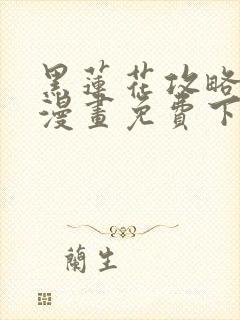 黑蓮花攻略
漫畫免費下
蘭生